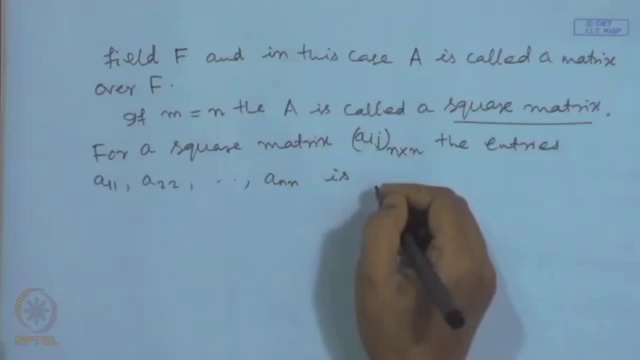 © CET
I.I.T. KGP
field F and in this case A is called a matrix
over F.
If m = n the A is called a square matrix.
For a square matrix (aij)n×n the entries
a11, a22, ..., ann is
NPTEL